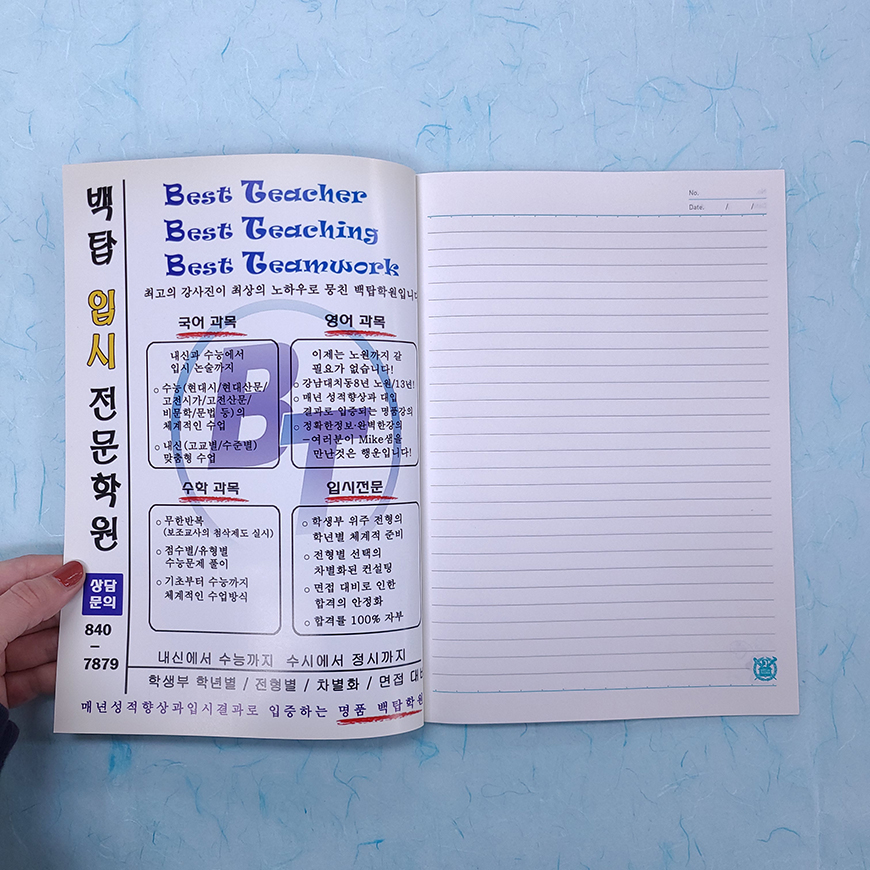 백탑 입시 전문학원
상담
문의
840
–
7879
Best Teacher
Best Teaching
Best Teamwork
최고의 강사진이 최상의 노하우로 뭉친 백탑학원입니다
국어 과목
내신과 수능에서
입시 논술까지
○ 수능(현대시/현대산문/
고전시가/고전산문/
비문학/문법 등)의
체계적인 수업
○ 내신(고교별/수준별)
맞춤형 수업
영어 과목
이제는 노원까지 갈
필요가 없습니다!
○ 강남대치동8년 노원/13년!
○ 매년 성적향상과 대입
결과로 입증되는 명품강의
○ 정확한정보·완벽한강의
–여러분이 Mike샘을
만난것은 행운입니다!
수학 과목
○ 무한반복
(보조교사의 첨삭제도 실시)
○ 점수별/유형별
수능문제 풀이
○ 기초부터 수능까지
체계적인 수업방식
입시전문
○ 학생부 위주 전형의
학년별 체계적 준비
○ 전형별 선택의
차별화된 컨설팅
○ 면접 대비로 인한
합격의 안정화
○ 합격률 100% 자부
BT
내신에서 수능까지 수시에서 정시까지
학생부 학년별 / 전형별 / 차별화 / 면접 대비
매년성적향상과입시결과로 입증하는 명품 백탑학원
No.
Date. / /